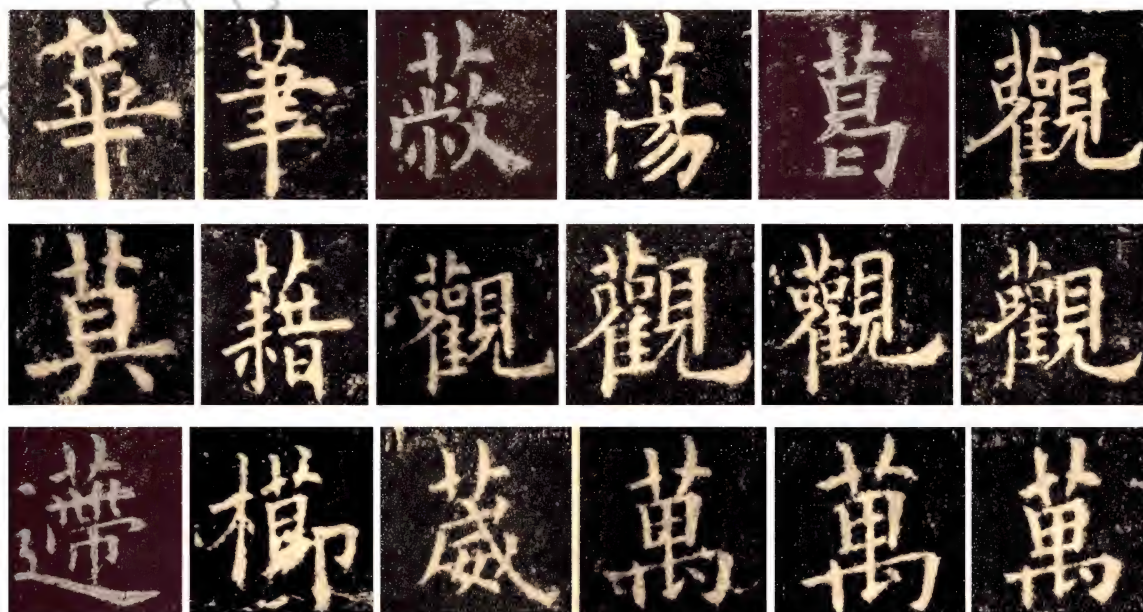 華茟蔽蕩葛觀
莫藉觀觀觀觀
櫛葳萬萬萬